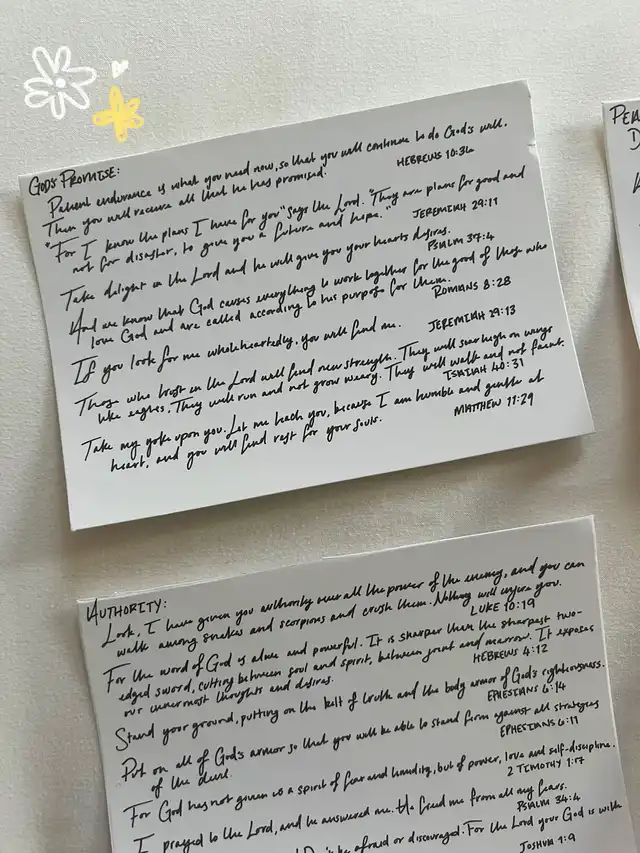 GOD'S PROMISE:
Patient endurance is what you need now, so that you will continue to do God's will.
Then you will receive all that he has promised.
HEBREWS 10:36
"For I know the plans I have for you" says the Lord. "They are plans for good and
not for disaster, to give you a future and hope."
JEREMIAH 29:11
Take delight in the Lord and he will give you your hearts desires.
PSALM 37:4
And we know that God causes everything to work together for the good of those who
love God and are called according to his purpose for them.
ROMANS 8:28
If you look for me wholeheartedly, you will find me.
JEREMIAH 29:13
Those who trust in the Lord will find new strength. They will soar high on wings
like eagles. They will run and not grow weary. They will walk and not faint.
ISAIAH 40:31
Take my yoke upon you. Let me teach you, because I am humble and gentle at
heart, and you will find rest for your souls.
MATTHEW 11:29
AUTHORITY:
Look, I have given you authority over all the power of the enemy, and you can
walk among snakes and scorpions and crush them. Nothing will injure you.
LUKE 10:19
For the word of God is alive and powerful. It is sharper than the sharpest two-
edged sword, cutting between soul and spirit, between joint and marrow. It exposes
our innermost thoughts and desires.
HEBREWS 4:12
Stand your ground, putting on the belt of truth and the body armor of God's righteousness.
EPHESIANS 6:14
Put on all of God's armor so that you will be able to stand firm against all strategies
of the devil.
EPHESIANS 6:11
For God has not given us a spirit of fear and timidity, but of power, love and self-discipline.
2 TIMOTHY 1:7
I prayed to the Lord, and he answered me. He freed me from all my fears.
PSALM 34:4
be afraid or discouraged. For the Lord your God is with
JOSHUA 1:9